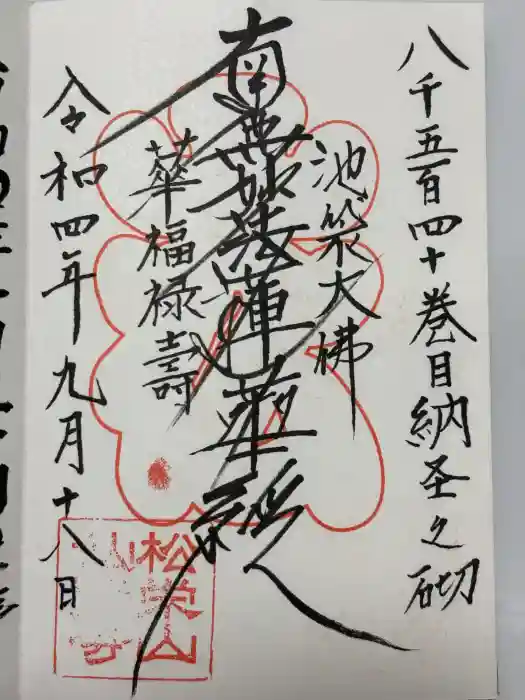 八千五百四十巻目納圣之砌
池袋大佛
南無妙法蓮華経
華福禄壽
令和四年九月十八日
松栄山